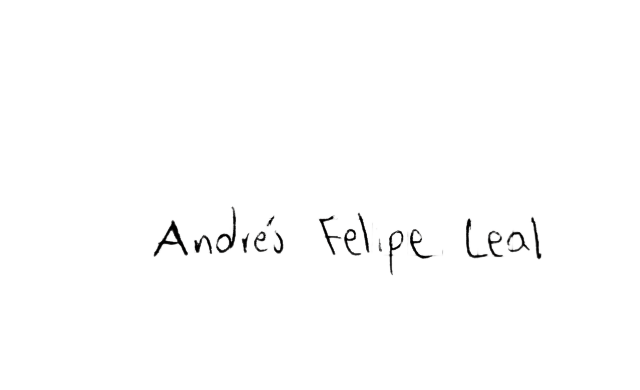 Andrés Felipe Leal